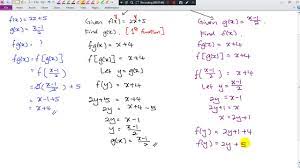 f(x) = 2x+5
g(x) = x-1/2
fg(x) = ?
fg(x) = f[g(x)]
= f(x-1/2)
= 2(x-1/2)+5
= x-1+5
= x+4
Given f(x) = 2x+5
Find g(x).
fg(x) = x+4
f[g(x)] = x+4
Let y = g(x)
f(y) = x+4
2y+5 = x+4
2y = x+4-5
2y = x-1
y = x-1/2
g(x) = x-1/2
Given g(x) = x-1/2
Find f(x).
fg(x) = x+4
f[g(x)] = x+4
f(x-1/2) = x+4
Let y = x-1/2
2y = x-1
2y+1 = x
x = 2y+1
f(y) = 2y+1+4
f(y) = 2y+5